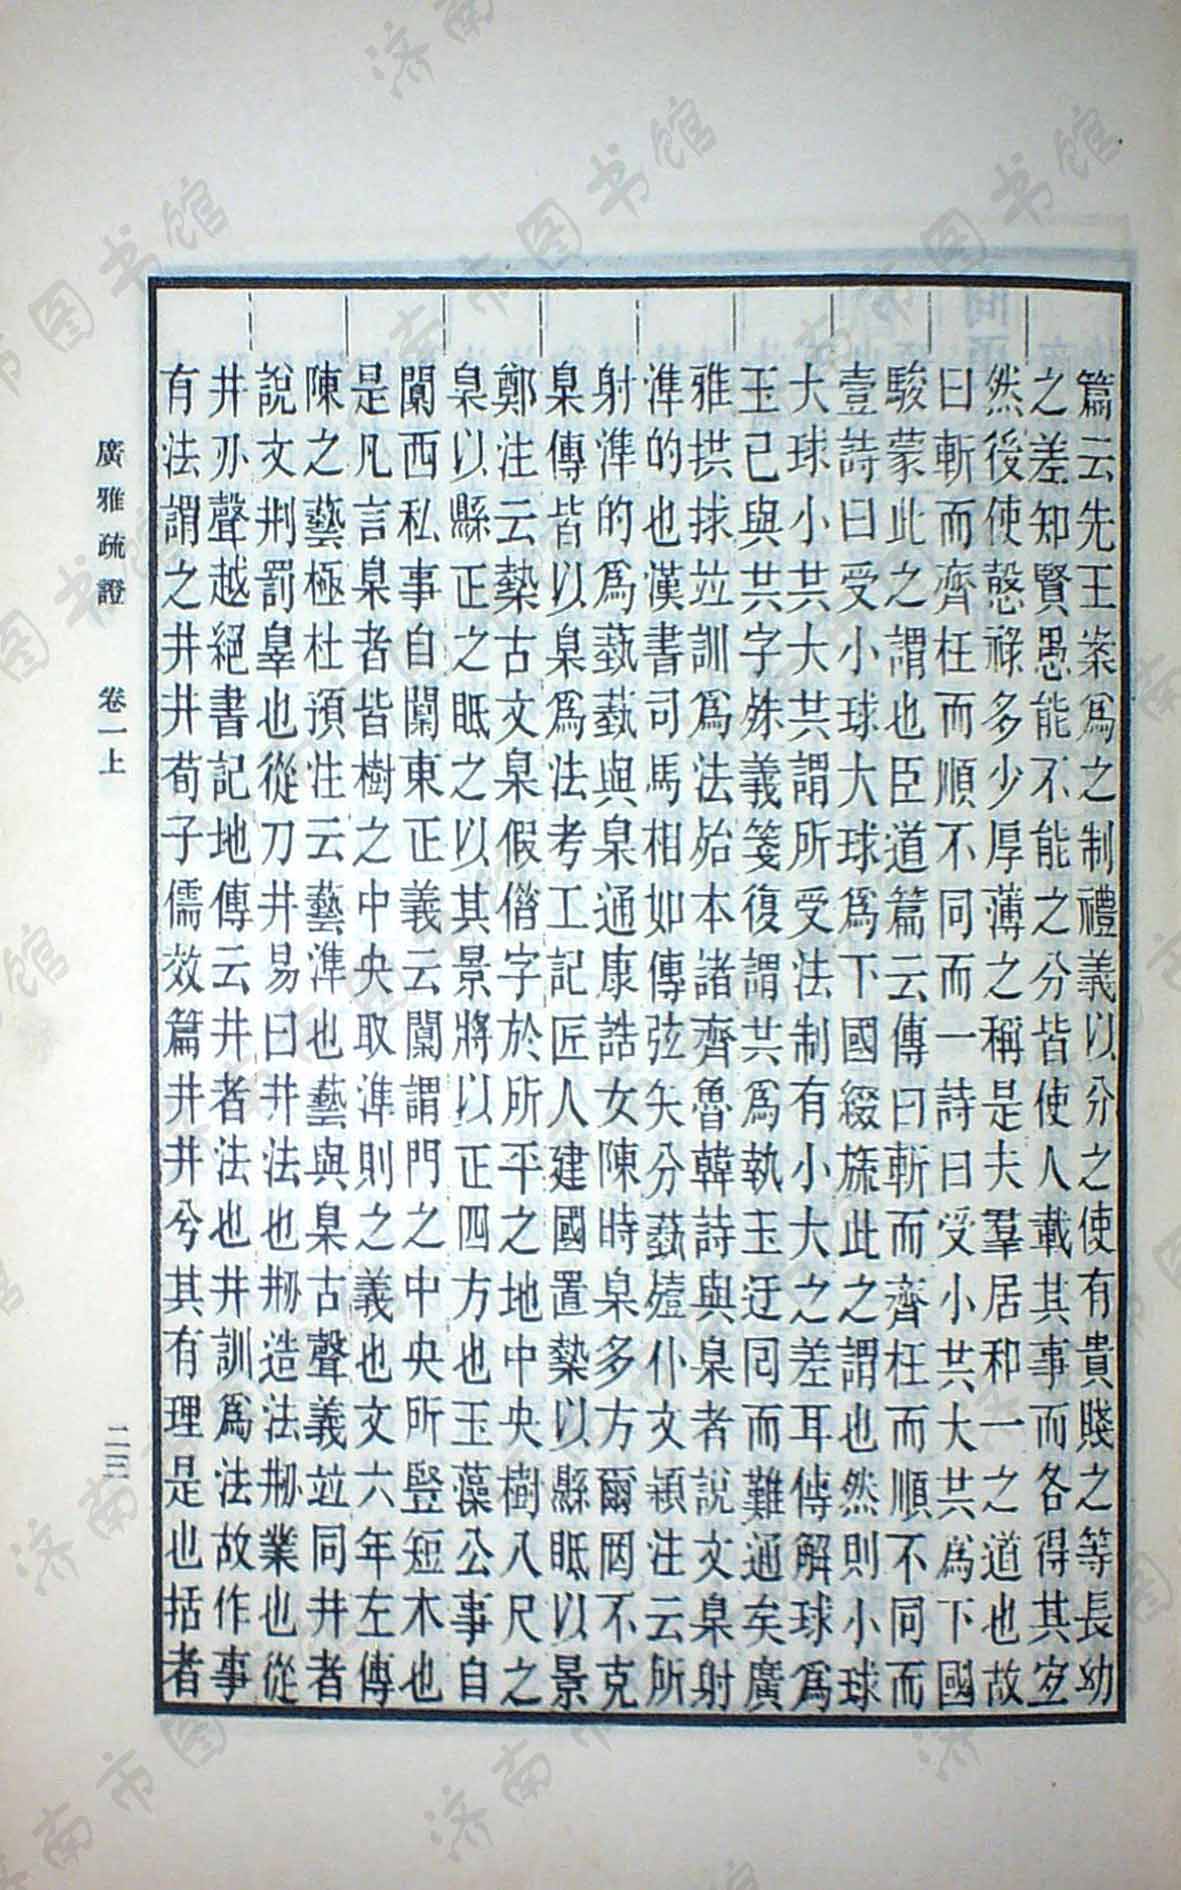 篇云先王案爲之制禮義以分之使有貴賤之等長幼
之差知賢愚能不能之分皆使人載其事而各得其宐
然後使愨祿多少厚薄之稱是夫羣居和一之道也故
曰斬而齊枉而順不同而一詩曰受小共大共爲下國
駿蒙此之謂也臣道篇云傳曰斬而齊枉而順不同而
壹詩曰受小球大球爲下國綴旒此之謂也然則小球
大球小共大共謂所受法制有小大之差耳傳解球爲
玉已與共字殊義箋復謂共爲執玉迂回而難通矣廣
雅拱捄竝訓爲法殆本諸齊魯韓詩與臬者說文臬射
準的也漢書司馬相如傳弦矢分蓺殪仆文穎注云所
射準的爲蓺蓺與臬通康誥女陳時臬多方爾罔不克
臬傳皆以臬爲法考工記匠人建國置槷以縣眂以景
鄭注云槷古文臬假借字於所平之地中央樹八尺之
臬以縣正之眂之以其景將以正四方也玉藻公事自
闑西私事自闑東正義云闑謂門之中央所豎短木也
是凡言臬者皆樹之中央取準則之義也文六年左傳
陳之藝極杜預注云藝準也藝與臬古聲義竝同井者
說文荆罰辠也從刀井易曰井法也刱造法刱業也從
井刅聲越絕書記地傳云井者法也井訓爲法故作事
有法謂之井井荀子儒效篇井井兮其有理是也括者
廣雅疏證 卷一上 二三
济南市图书馆